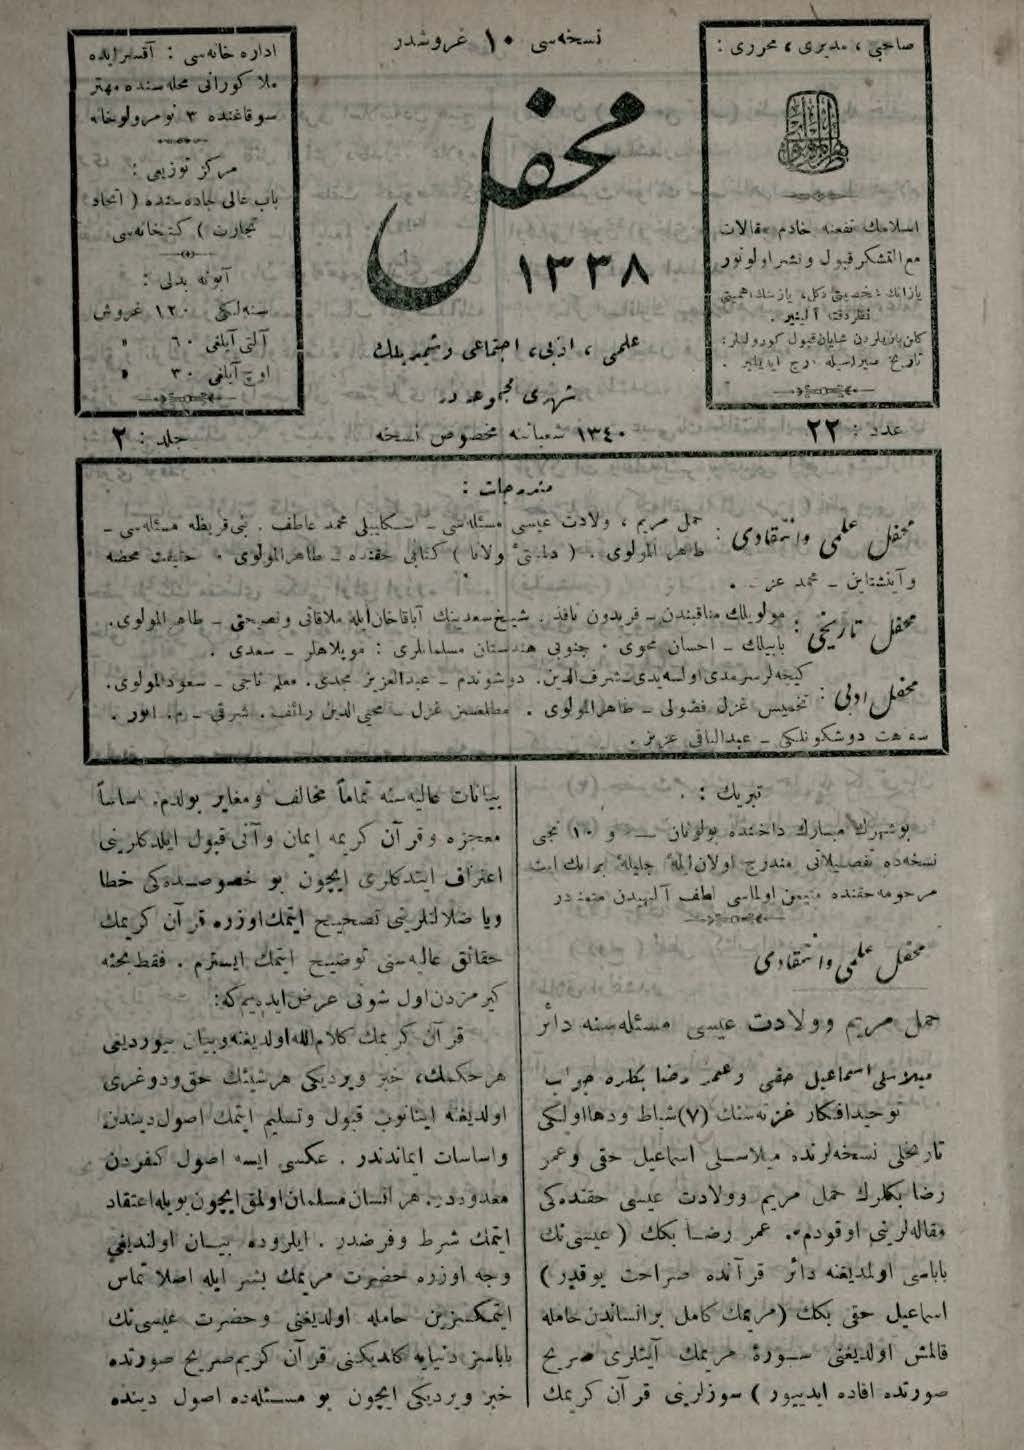 نسخه‌سی ۱۰ غروشدر
صاحبی ، مدیری ، محرری :
اسلامك نفعنه خادم مقالات
مع‌التشکر قبول ونشر اولونور
یازانك شخصیتی دکل، یازینك اهمیتی
نظر دقته آلینیر .
تاریخ صیراسیله درج ایدیلیر .
محفل
۱۳۳۸
علمی ، ادبی ، اجتماعی
شهری مجموعه‌در
اداره خانه‌سی : آقسرایده
ملا کورانی محله‌سنده مهتر
سوقاغنده ۳ نومرولو خانه
مرکز توزیعی :
باب عالی جاده‌سنده ( اتحاد
تجارت ) کتبخانه‌سی
آبونه بدلی :
سنه‌لکی ۱۲۰ غروش
آلتی آیلغی ۶۰ »
اوچ آیلغی ۳۰ »
عدد : ۲۲
۱۳۴۰ شعباننه مخصوص نسخه
جلد : ۲
مندرجات :
محفل علمی وانتقادی : حمل مریم ، ولادت عیسی مسئله‌سی ــ اسکلیبلی محمد عاطف . بنی قریظه مسئله‌سی ــ
طاهر المولوی . ( ولانا ) کتابی حقنده ــ طاهر المولوی . حقیقت محضه
وآینشتاین ــ محمد عزت .
محفل تاریخی : مولویلك مناقبندن ــ فریدون نافذ . شیخ سعدینك آباقاخان ایله ملاقاتی ونصیحتی ــ طاهر المولوی.
بابیلك ــ احسان محوی . جنوبی هندستان مسلمانلری : موپلاهلر ــ سعدی .
محفل ادبی : کیجه‌لر سرمدی اولسه‌یدی ــ شرف الدین. دوشوندم ــ عبدالعزیز مجدی. معلم ناجی ــ سعود المولوی.
تخمیس غزل فضولی ــ طاهر المولوی . مطلعسز غزل ــ محیی الدین رائف. شرقی ــ م. انور .
دوشکونلکی ــ عبدالباقی عزیز .
تبریك :
بوشهرك مبارك داخلنده بولونان و ۱۰ نجی
نسخه‌ده تفصیلاتی مندرج اولان لیلهٔ جلیلهٔ براتك امت
مرحومه حقنده متیمن اولماسی لطف آلهیدن متمنادر
محفل علمی وانتقادی
حمل مریم وولادت عیسی مسئله‌سنه دائر
میلاسلی اسماعیل حقی وعمر رضا بکلره جواب
توحید افکار غزته‌سنك (۷) شباط ودها اولکی
تاریخلی نسخه‌لرنده میلاسلی اسماعیل حقی وعمر
رضا بکلرك حمل مریم وولادت عیسی حقنده‌کی
مقاله‌لرینی اوقودم. عمر رضا بکك ( عیسی‌نك
باباسی اولمدیغنه دائر قرآنده صراحت یوقدر )
اسماعیل حقی بکك (مریمك کامل بر انساندن حامله
قالمش اولدیغنی سورهٔ مریمك آیتلری صریح
صورتده افاده ایدییور ) سوزلرینی قرآن کریمك
بیانات عالیه‌سنه تماماً مخالف ومغایر بولدم. اساساً
معجزه وقرآن کریمه ایمان وآنی قبول ایلدکلرینی
اعتراف ایتدکلری ایچون بو خصوصده‌کی خطا
ویا ضلالتلرینی تصحیح ایتمك اوزره قرآن کریمك
حقائق عالیه‌سنی توضیح ایتمك ایسترم . فقط بحثه
کیرمزدن اول شونی عرض ایده‌یم که:
قرآن کریمك کلام الله اولدیغنه وبیان بیوردیغی
هر حکمك، خبر ویردیکی هر شیئك حق ودوغری
اولدیغنه اینانوب قبول وتسلیم ایتمك اصول دیندن
واساسات ایماندندر . عکسی ایسه اصول کفردن
معدوددر. هر انسان مسلمان اولمق ایچون بویله اعتقاد
ایتمك شرط وفرضدر . ایلروده بیان اولندیغی
وجه اوزره حضرت مریمك بشر ایله اصلا تماس
ایتمکسزین حامله اولدیغنی وحضرت عیسی‌نك
باباسز دنیایه کلدیکنی قرآن کریم صریح صورتده
خبر ویردیکی ایچون بو مسئله‌ده اصول دینده